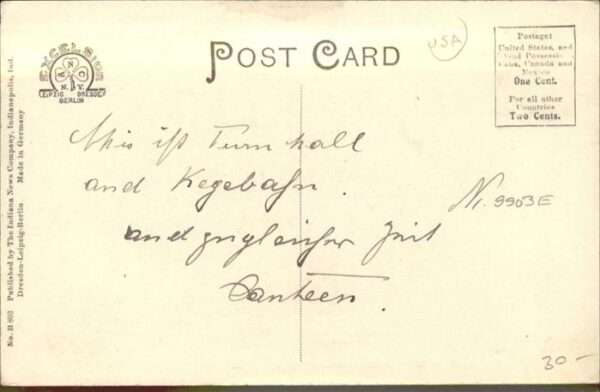 POST CARD
USA
EXCELSIOR
N.Y.
LEIPZIG DRESDEN
BERLIN
Postage:
United States, and
Canada and
Mexico
One Cent.
For all other
Countries
Two Cents.
This ist Turn hall
and Kegebahn.
and zugleicher Zeit
Canteen.
Nr. 9903E
30-
No. II 803 Published by The Indiana News Company, Indianapolis, Ind.
Dresden-Leipzig-Berlin Made in Germany